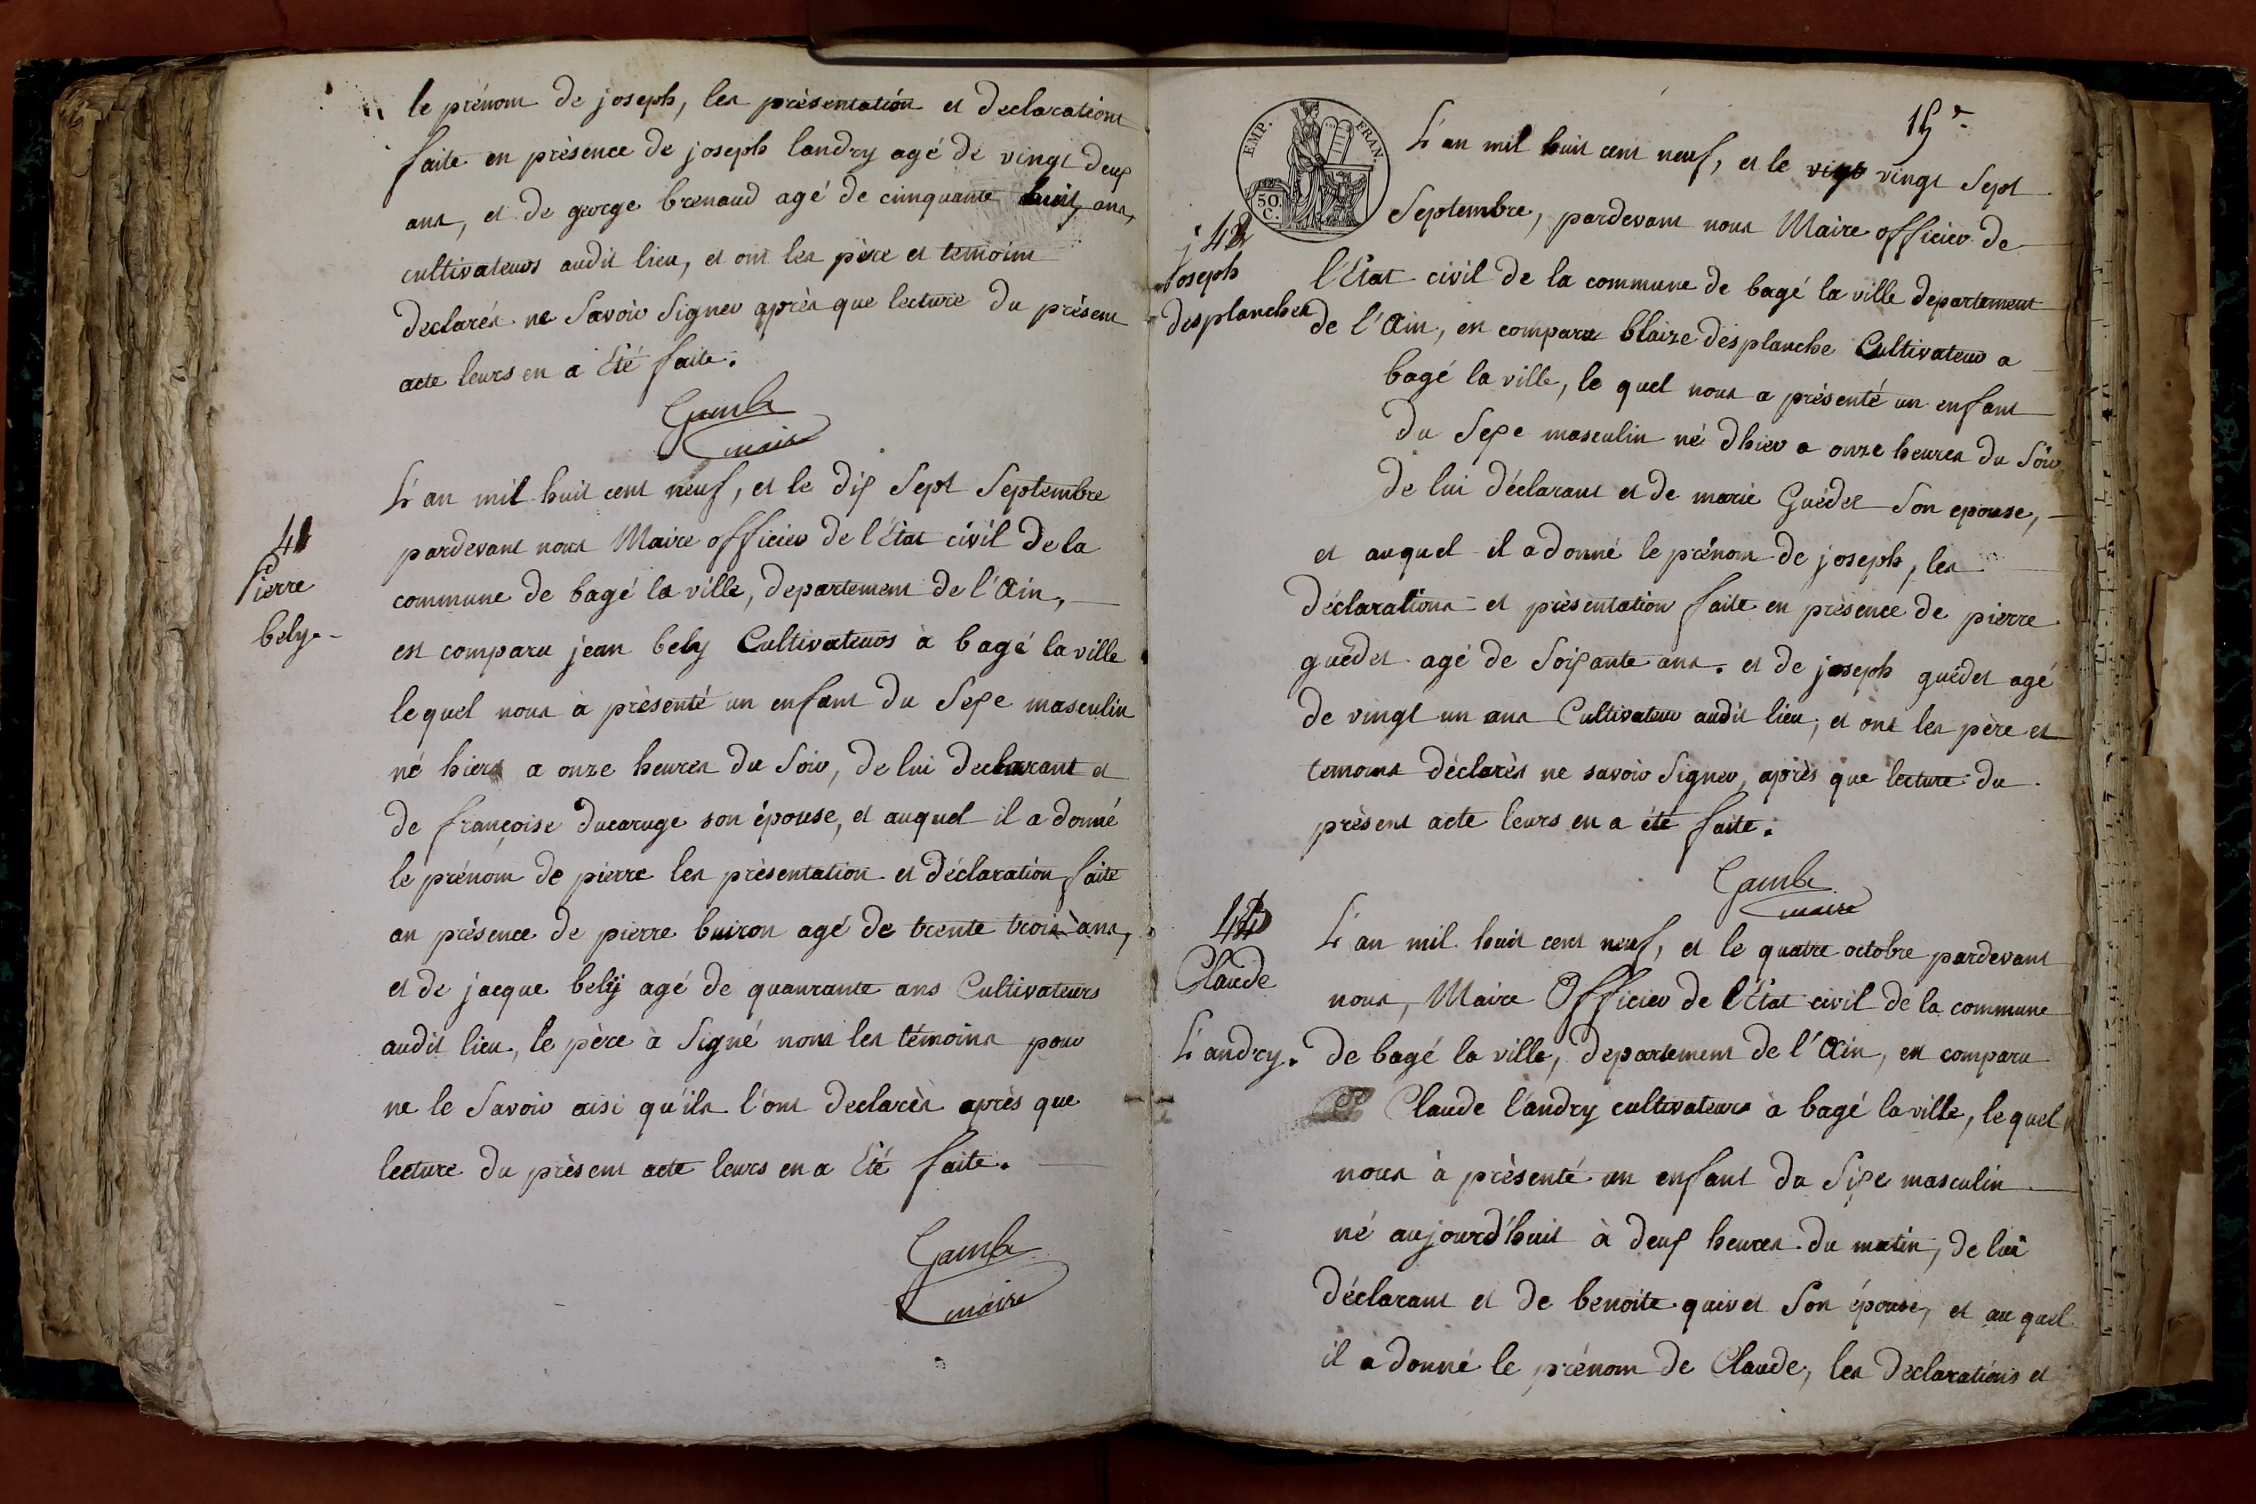 le prénom de joseph, les présentation et declarations
faite en présence de joseph landry agé de vingt deux
ans, et de george brenaud agé de cinquante huit ans,
cultivateurs audit lieu, et ont les père et temoins
declarés ne Savoir Signer après que lecture du présent
acte leurs en a Eté faite.
maire
41
Pierre
bely.
L'an mil huit cent neuf, et le dix Sept Septembre
pardevant nous Maire officier de l'Etat civil de la
commune de bagé la ville, departement de l'Ain,
est comparu jean bely Cultivateurs à bagé la ville
lequel nous à présenté un enfant du Sexe masculin
né hiers a onze heures du Soir, de lui declarant et
de françoise ducaruge son épouse, et auquel il a donné
le prénom de pierre les présentation et déclaration faite
an présence de pierre buiron agé de trente trois ans,
et de jacque bely agé de quaurante ans Cultivateurs
audit lieu, le père à Signé nom les témoins pour
ne le Savoir aisi qu'ils l'ont declarés après que
lecture du présent acte leurs en a Eté faite.
maire
EMP. FRAN.
50.
C.
15e
42
joseph
desplanches
L'an mil huit cent neuf, et le vingt Sept
Septembre, pardevant nous Maire officier de
l'Etat civil de la commune de bagé la ville departement
de l'Ain, en comparu blaize desplanche Cultivateur a
bagé la ville, le quel nous a présenté un enfant
du Sexe masculin né dhier a onze heures du Soir
de lui déclarant et de marie Guédet Son epouse,
et auquel il a donné le prénom de joseph, les
déclarations et présentation faite en présence de pierre
guédet agé de Soixante ans. et de joseph guédet agé
de vingt un ans Cultivateur audit lieu, et ont les père et
temoins déclarés ne savoir Signer, après que lecture du
présent acte leurs en a été faite.
maire
Claude
Landry.
L'an mil huit cent neuf, et le quatre octobre pardevant
nous, Maire Officier de l'Etat civil de la commune
de bagé la ville, departement de l'Ain, en comparu
Claude landry cultivateurs à bagé la ville, lequel
nous à présenté un enfant du Sexe masculin
né aujourd'huit à deux heures du matin, de lui
déclarant et de benoite quivet Son épouse, et auquel
il a donné le prénom de Claude, les declarations et